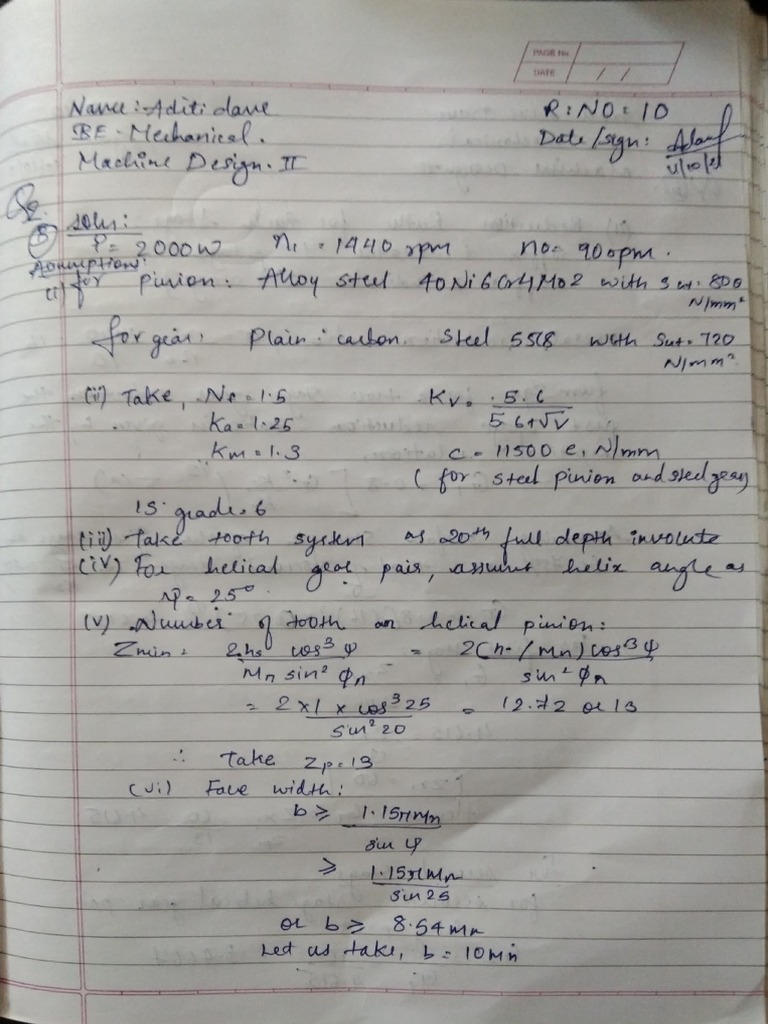 PAGE No.
DATE / /
Name: Aditi dave R.NO: 10
BE - Mechanical. Date/sign:
Machine Design. II
Q2.
B) soln:
P = 2000W n1 = 1440 rpm no = 90 rpm.
Assumption:
(i) for pinion: Alloy steel 40Ni6Cr4Mo2 with Sut = 800 N/mm²
for gear: Plain: carbon. Steel 55C8 with Sut = 720 N/mm²
(ii) Take, Nf = 1.5 Kv = 5.6 / 5.6+√v
Ka = 1.25
Km = 1.3 c = 11500 e, N/mm
( for steel pinion and steel gear)
IS grade = 6
(iii) Take tooth system as 20th full depth involute
(iv) For helical gear pair, assume helix angle as
ψ = 25°
(v) Number of tooth on helical pinion:
Zmin = 2ha cos³ψ / Mn sin² φn = 2(ha/Mn) cos³ψ / sin² φn
= 2×1×cos³25 / sin²20 = 12.72 or 13
∴ Take Zp = 13
(vi) Face width:
b ≥ 1.15πmn / sin ψ
≥ 1.15πmn / sin 25
or b ≥ 8.54 mn
Let us take, b = 10mn